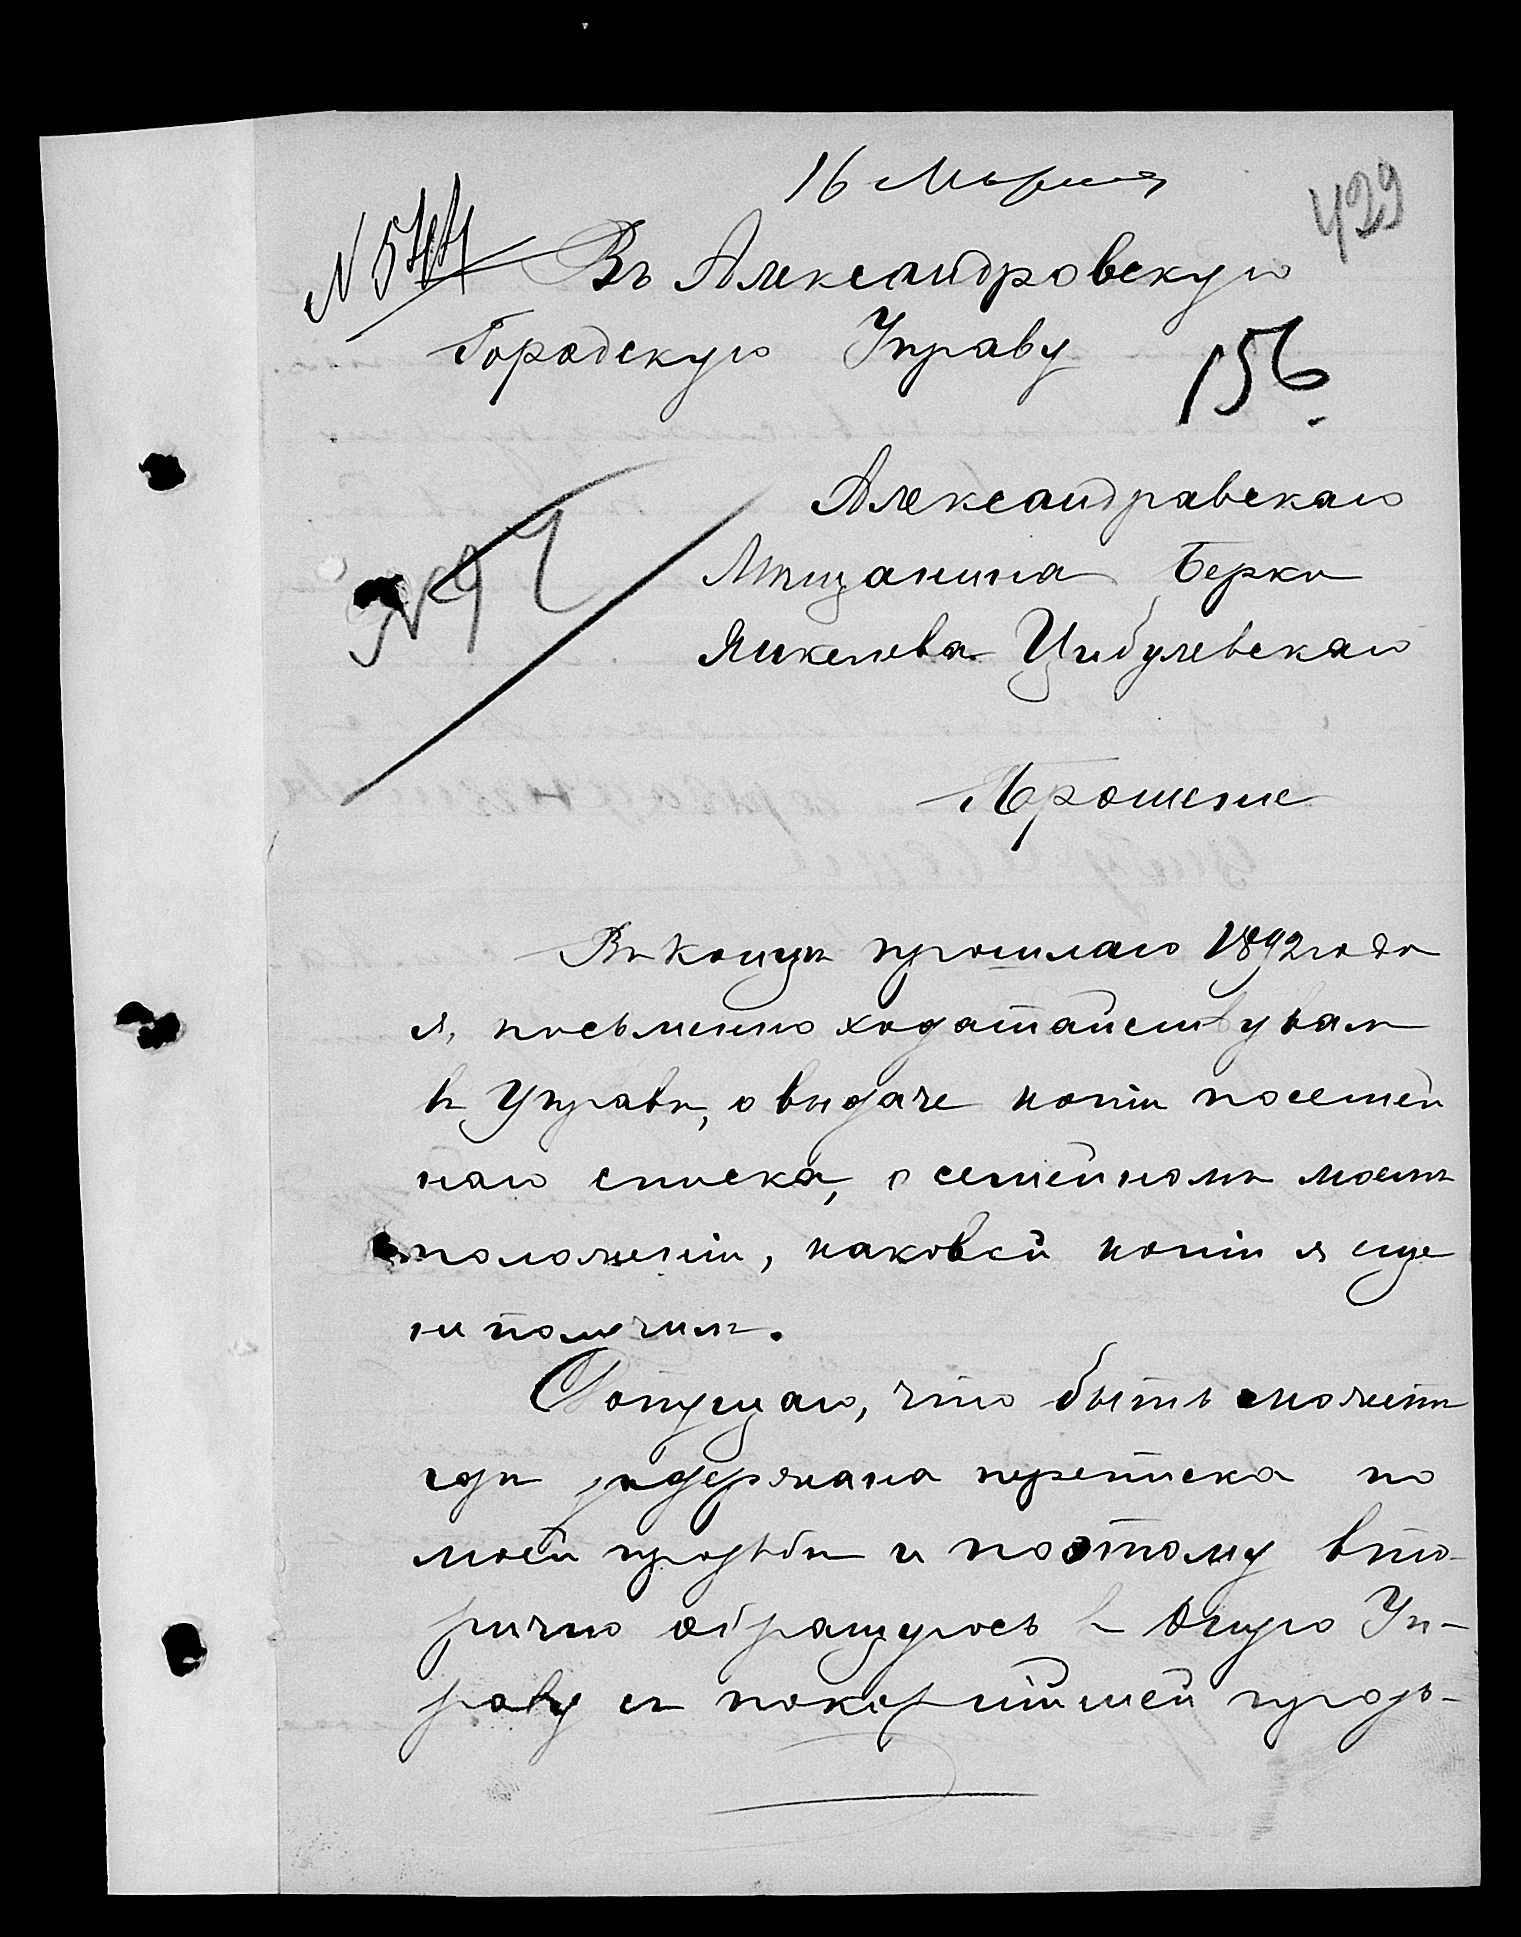 16 Марта
429
N 544
Въ Александровскую
Городскую Управу
156
Александравскаго
Мѣщанина Берка
Янкелева Цибулевскаго
N 92
Прошение
Въ Концѣ прошлаго 1892 года
я, письменно ходатайствувалъ
въ Управѣ, о выдаче копіи посемей
наго списка, о семейномъ моемъ
положеніи, каковой копіи я еще
не получилъ.
Допущаю, что быть можетъ
гдѣ задержана переписка по
моей прозьбѣ и поэтому вто-
рично обращуюсь в Оную Уп-
раву съ покорнѣйшей прозь-